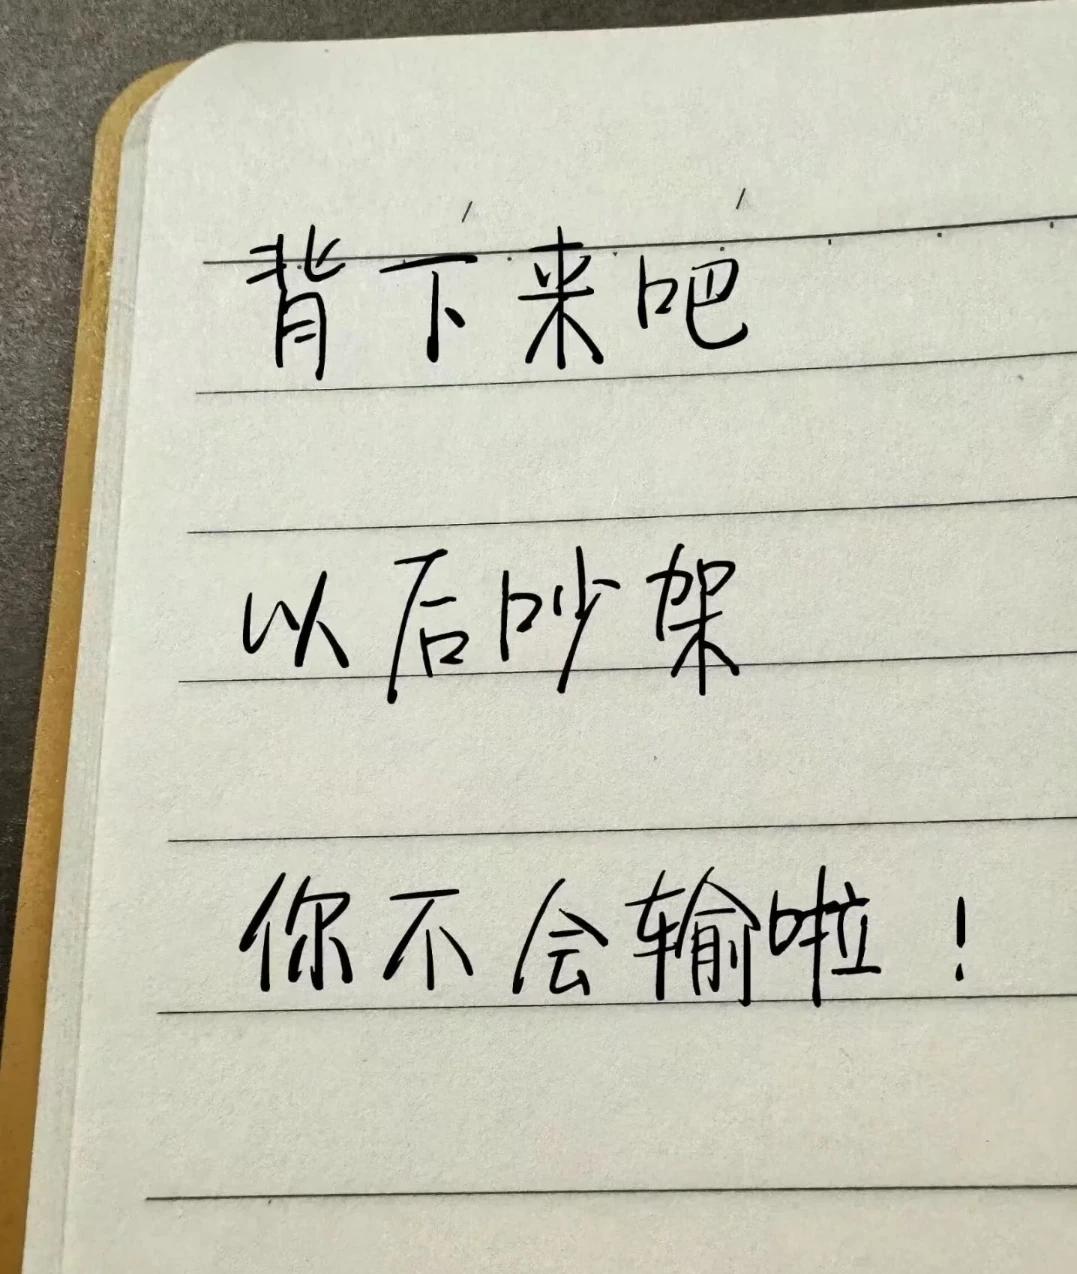 背下来吧
以后吵架
你不会输啦！